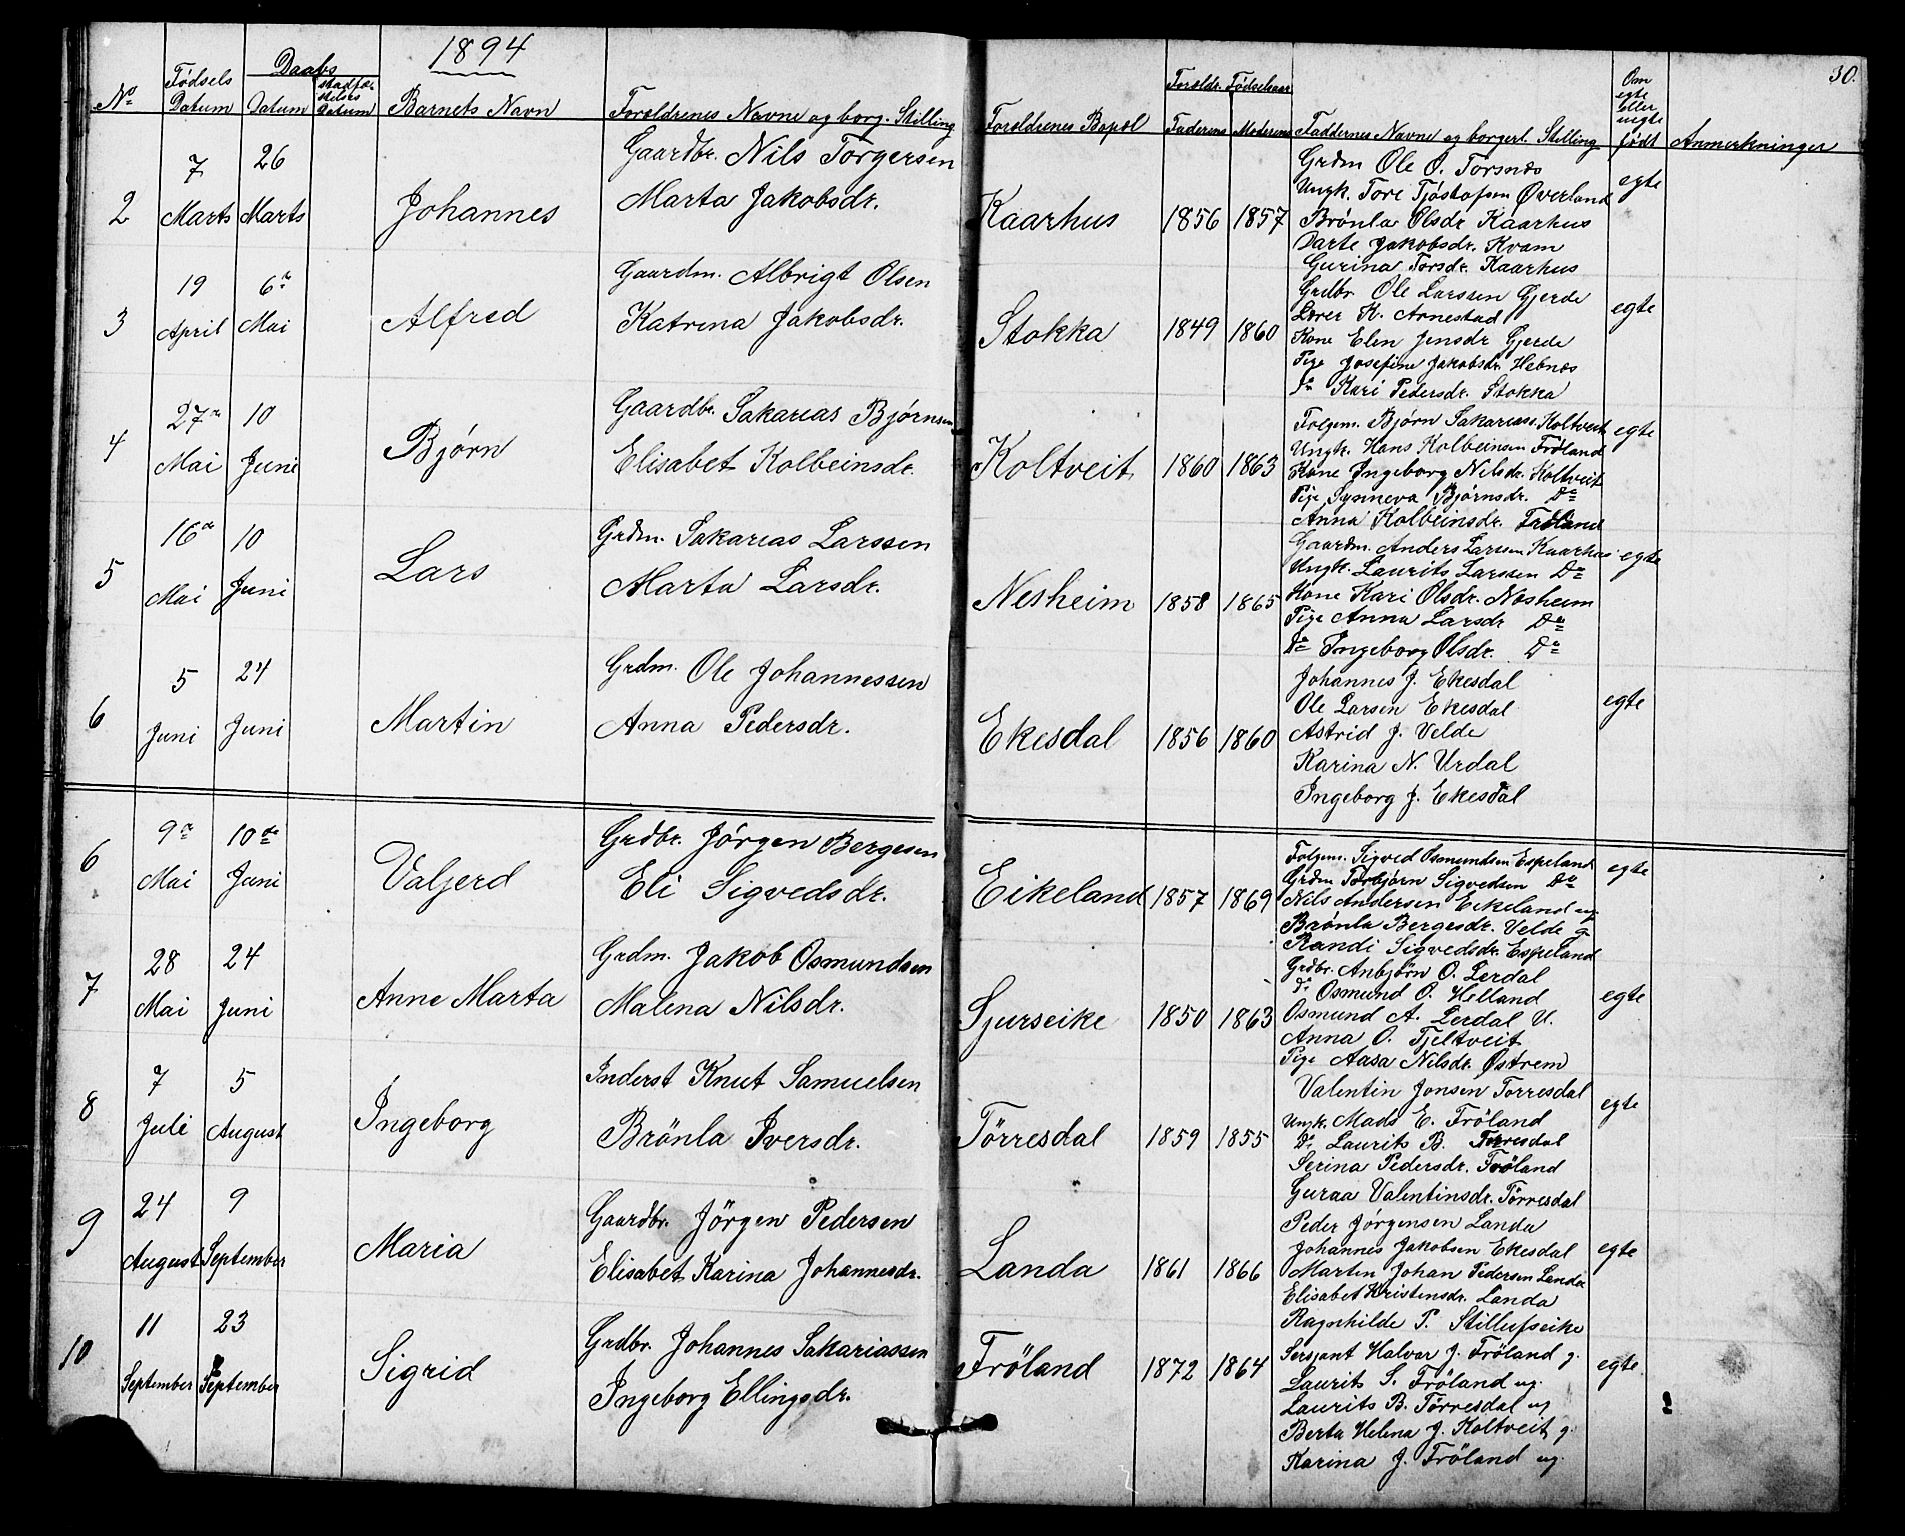 1894
30.
No Fødsels Datum Daabs Datum Stadfæstelses Datum Barnets Navn Forældrenes Navne og borg. Stilling Forældrenes Bopæl Forældr. Fødselsaar Faderens Moderens Faddernes Navne og borgerl. Stilling Om egte eller uegte født Anmerkninger
2 7 Marts 26 Marts Johannes
Gaardbr. Nils Torgersen
Marta Jakobsdr.
Kaarhus 1856 1857
Grdm Ole O. Torsnæs
Ungk. Tore Tjøstofsen Øverland
Brönla Olsdr Kaarhus
Darte Jakobsdr. Kvam
Gurina Torsdr. Kaarhus
egte
3 19 April 6te Mai Alfred
Gaardm. Albrigt Olsen
Katrina Jakobsdr.
Stokka 1849 1860
Grdbr Ole Larssen Gjerde
Lærer K. Arnestad
Kone Elen Jensdr Gjerde
Pige Josefine Jakobsdr. Hebnæs
Do Kari Pedersdr. Stokka
egte
4 27de Mai 10 Juni Bjørn
Gaardbr. Sakarias Bjørnsen
Elisabet Kolbeinsdr.
Koltveit 1860 1863
Folgem. Bjørn Sakariass. Koltveit
Ungk. Hans Kolbeinsen Frøland
Kone Ingeborg Nilsdr. Koltveit
Pige Synneva Bjørnsdr. Do
Anna Kolbeinsdr. Frøland
egte
5 16de Mai 10 Juni Lars
Grdm. Sakarias Larssen
Marta Larsdr.
Nesheim 1858 1865
Gaardm. Anders Larssen Kaarhus
Ungk. Laurits Larssen Do
Kone Kari Olsdr. Næsheim
Pige Anna Larsdr Do
Do Ingeborg Olsdr. Do
egte
6 5 Juni 24 Juni Martin
Grdm. Ole Johannessen
Anna Pedersdr.
Ekesdal 1856 1860
Johannes J. Ekesdal
Ole Larsen Ekesdal
Astrid J. Velde
Karina N. Urdal
Ingeborg J. Ekesdal
egte
6 9de Mai 10de Juni Valjerd
Grdbr. Jörgen Bergesen
Eli Sigvedsdr.
Eikeland 1857 1869
Folgem. Sigved Osmundsen Espeland
Grdm Torbjørn Sigvedsen Do
Nils Andersen Eikeland ug.
Brönla Bergesdr. Velde g
Randi Sigvedsdr. Espeland
egte
7 28 Mai 24 Juni Anne Marta
Grdm. Jakob Osmundsen
Malena Nilsdr.
Sjurseike 1850 1863
Grdbr. Anbjörn O. Lerdal
Do Osmund O. Helland
Osmund A. Lerdal U.
Anna O. Tjeltveit
Pige Aasa Nilsdr. Østrem
egte
8 7 Juli 5 August Ingeborg
Inderst Knut Samuelsen
Brönla Iversdr.
Törresdal 1859 1855
Valentin Jonsen Torresdal
Ungk. Mads E. Fröland
Do Laurits B. Torresdal
Serina Pedersdr. Fröland
Guraa Valentinsdr. Törresdal
egte
9 24 August 9 September Maria
Gaardbr. Jörgen Pedersen
Elisabet Karina Johannesdr.
Landa 1861 1866
Peder Jörgensen Landa
Johannes Jakobsen Ekesdal
Martin Johan Pedersen Landa
Elisabet Kristensdr. Landa
Ragnhilde P. Stillufseike
egte
10 11 September 23 September Sigrid
Grdbr. Johannes Sakariassen
Ingeborg Ellingsdr.
Fröland 1872 1864
Sersjant Halvor J. Fröland g.
Laurits S. Fröland ug.
Laurits B. Törresdal ug
Berta Helena J. Koltveit g.
Karina J. Fröland ug.
egte